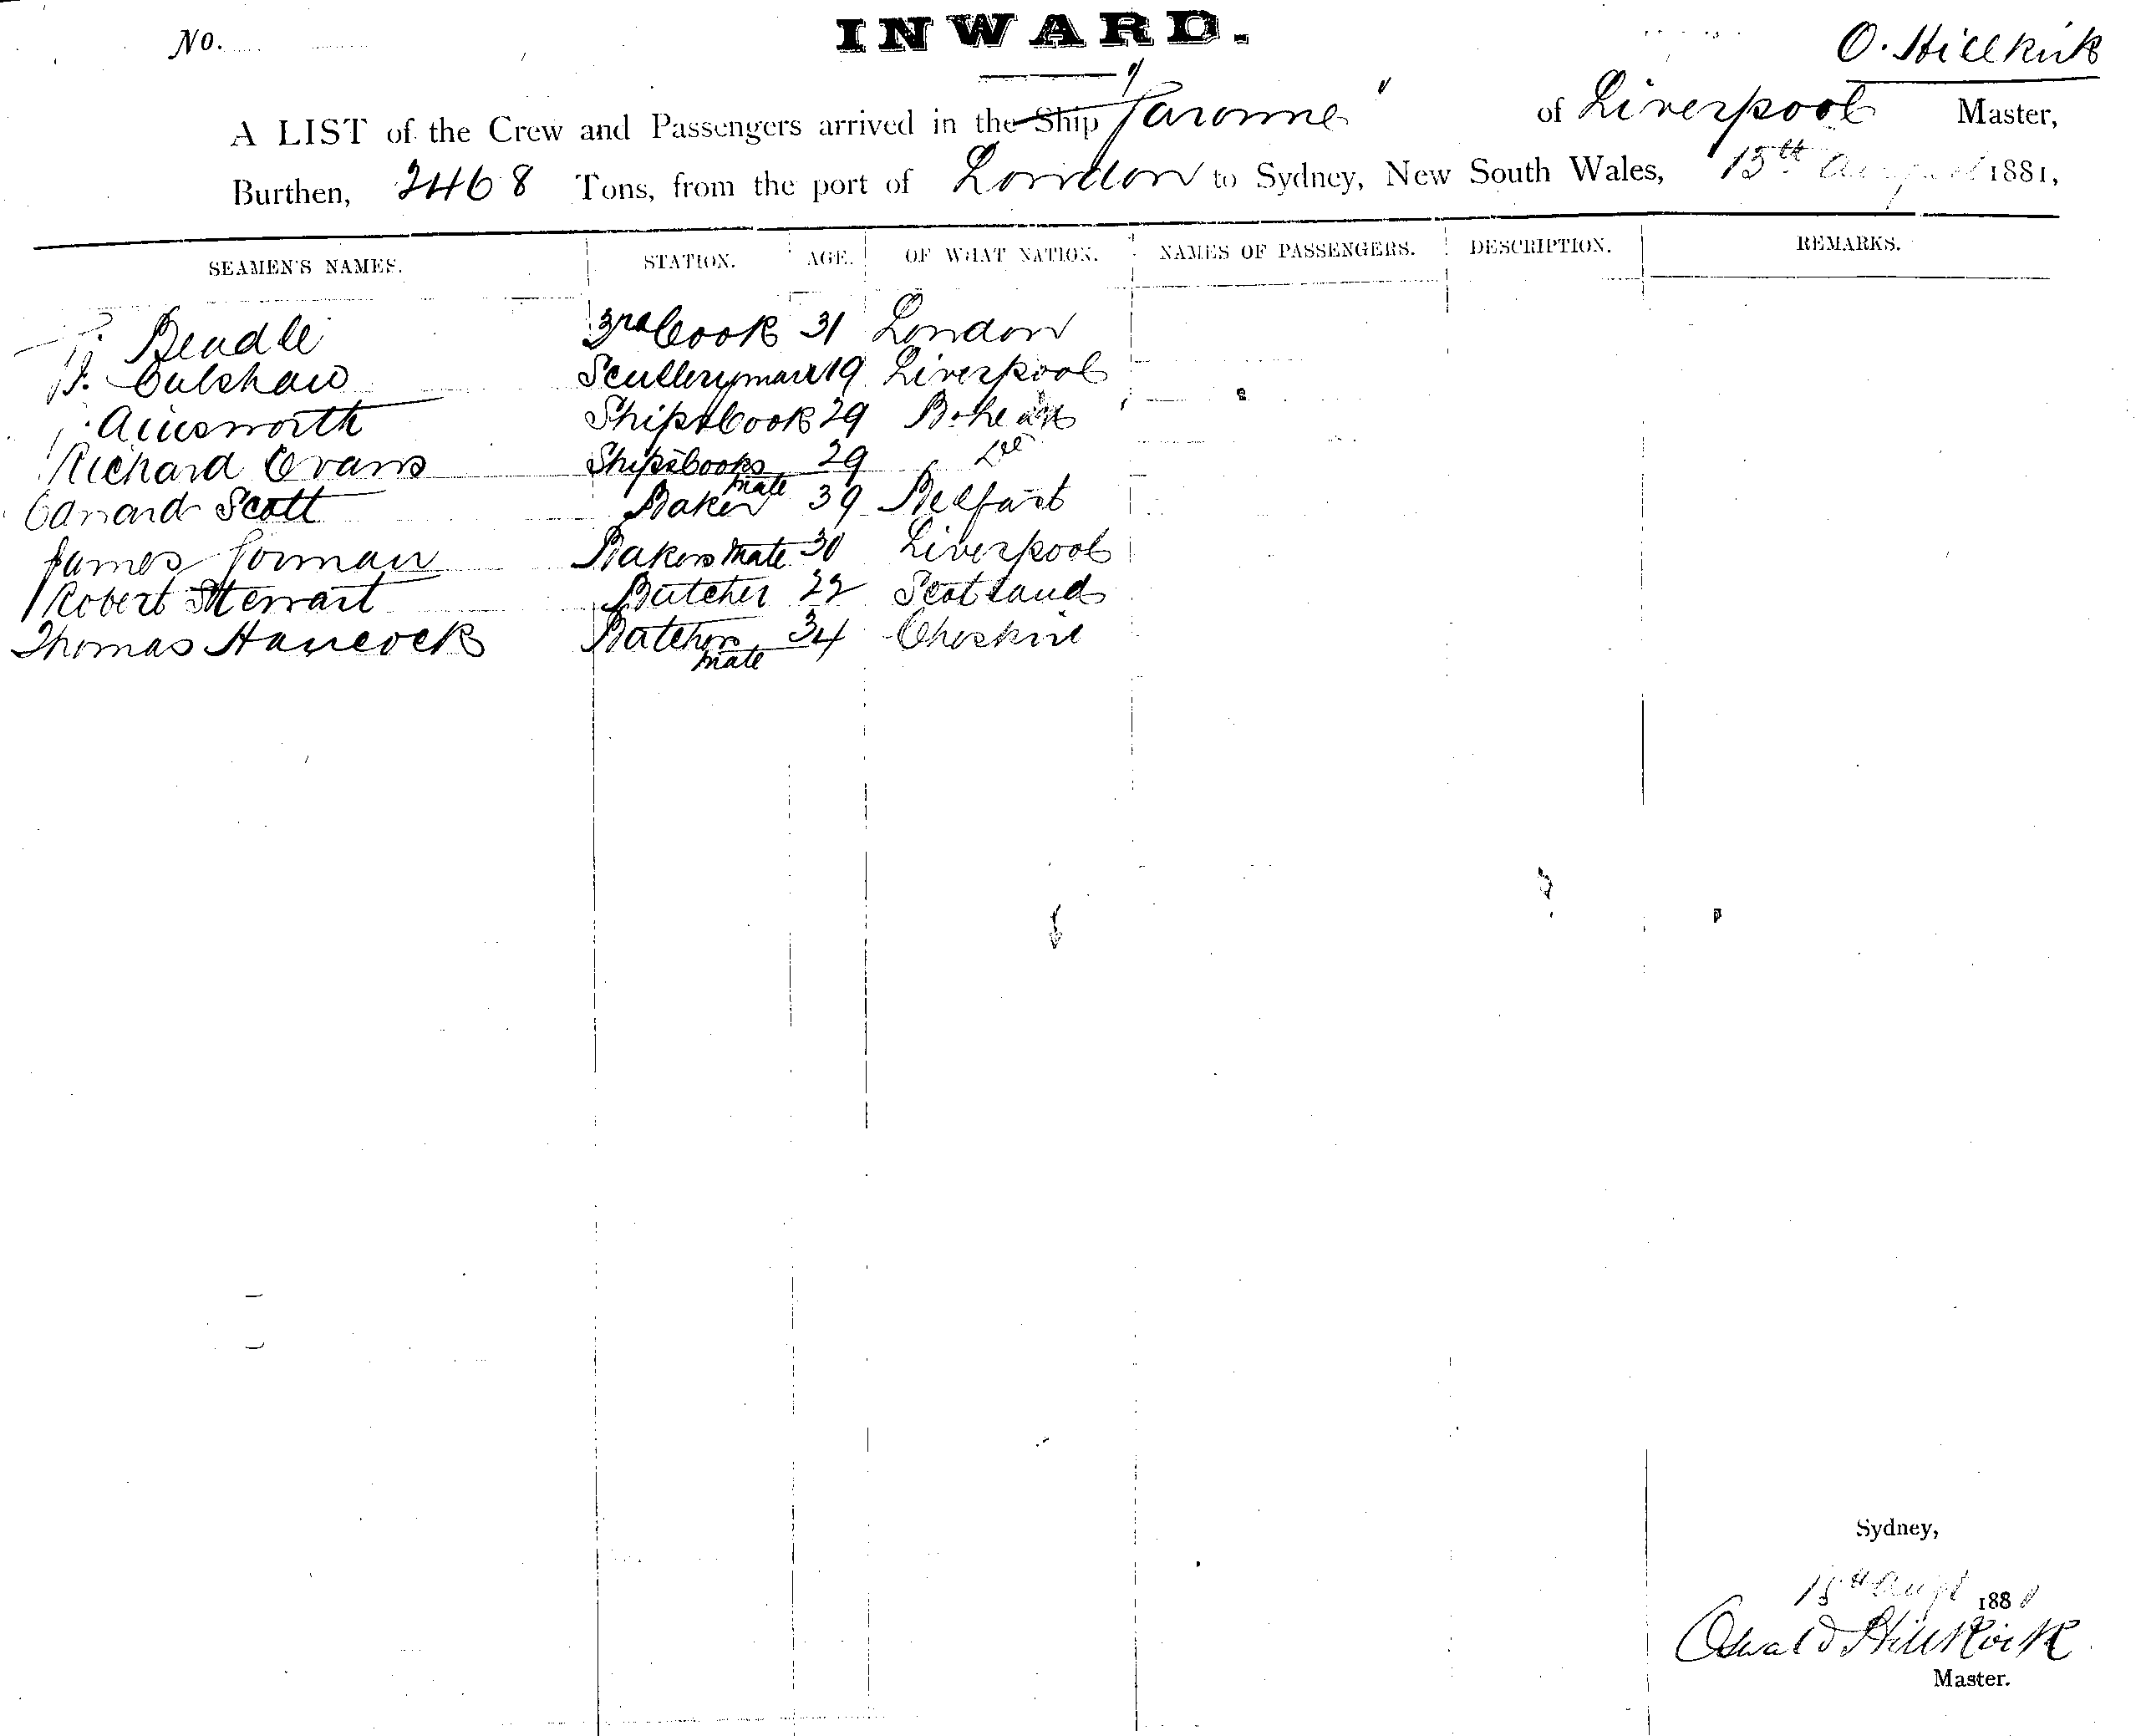 No.
INWARD.
O. Hillkirk
A LIST of the Crew and Passengers arrived in the Ship "Garonne" of Liverpool Master,
Burthen, 2468 Tons, from the port of London to Sydney, New South Wales, 15th August 1881,
SEAMEN'S NAMES. STATION. AGE. OF WHAT NATION. NAMES OF PASSENGERS. DESCRIPTION. REMARKS.
Beadle 3rd Cook 31 London
Culshaw Sculleryman 19 Liverpool
Ainsworth Ships Cook 29 B.head
Richard Evans Ships Cooks mate 29
Scott Baker 39 Belfast
James Gorman Bakers mate 30 Liverpool
Robert Stewart Butcher 22 Scotland
Thomas Hancock Butchers mate 34 Cheshire
Sydney,
15th Augt 1881
Oswald Hillkirk
Master.